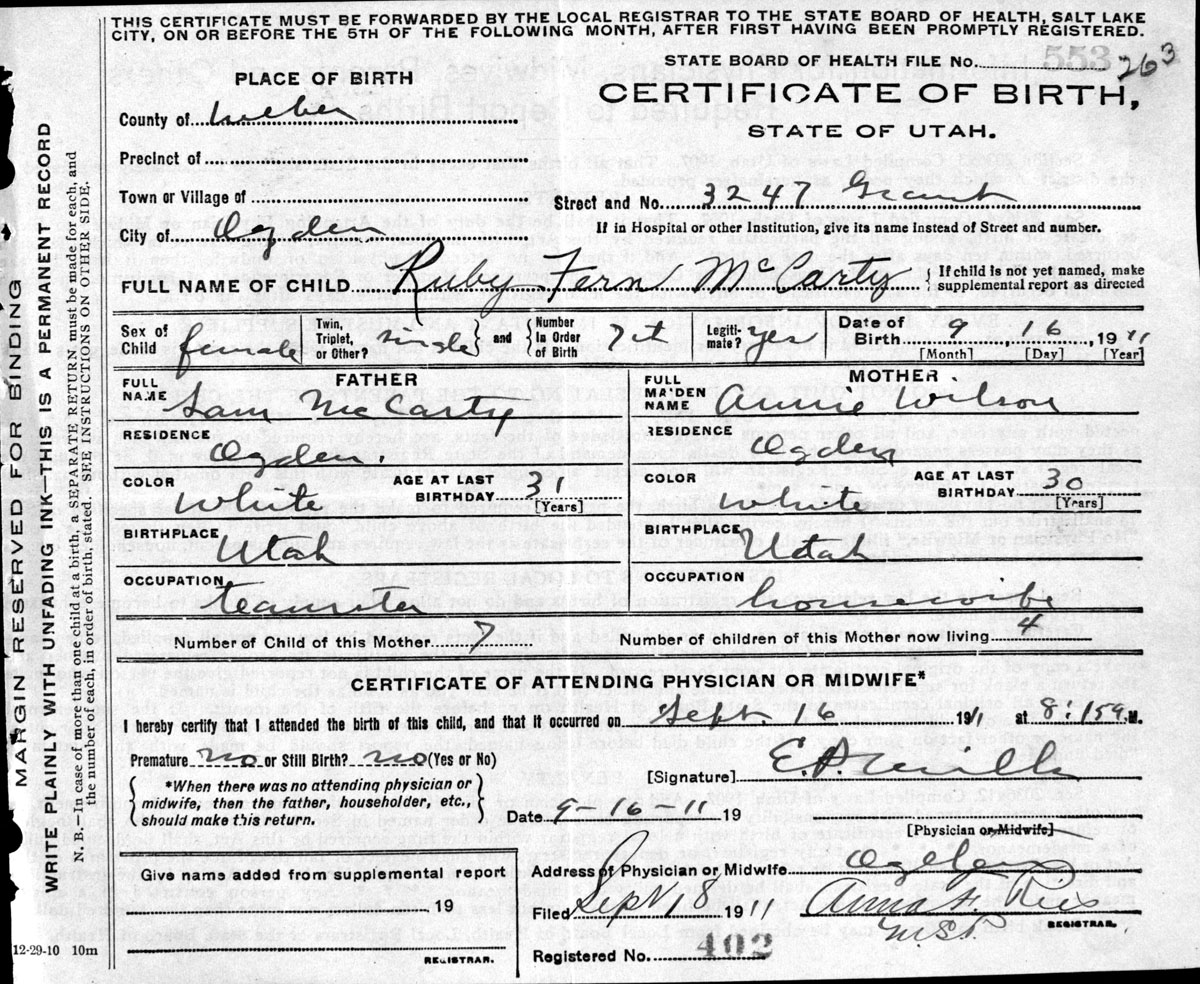 THIS CERTIFICATE MUST BE FORWARDED BY THE LOCAL REGISTRAR TO THE STATE BOARD OF HEALTH, SALT LAKE
CITY, ON OR BEFORE THE 5TH OF THE FOLLOWING MONTH, AFTER FIRST HAVING BEEN PROMPTLY REGISTERED.
STATE BOARD OF HEALTH FILE No. 553 263
PLACE OF BIRTH
CERTIFICATE OF BIRTH,
STATE OF UTAH.
County of Weber
Precinct of
Town or Village of
Street and No. 3247 Grant
City of Ogden
If in Hospital or other Institution, give its name Instead of Street and number.
FULL NAME OF CHILD Ruby Fern McCarty
If child is not yet named, make
supplemental report as directed
Sex of Child female
Twin, Triplet, or Other? single and
Number In Order of Birth
Legitimate? yes
Date of Birth 9, 16, 1911
[Month] [Day] [Year]
FATHER
FULL NAME Sam McCarty
RESIDENCE Ogden.
COLOR White
AGE AT LAST BIRTHDAY 31 [Years]
BIRTHPLACE Utah
OCCUPATION teamster
MOTHER
FULL MAIDEN NAME Annie Wilson
RESIDENCE Ogden
COLOR White
AGE AT LAST BIRTHDAY 30 [Years]
BIRTHPLACE Utah
OCCUPATION housewife
Number of Child of this Mother 7
Number of children of this Mother now living 4
CERTIFICATE OF ATTENDING PHYSICIAN OR MIDWIFE*
I hereby certify that I attended the birth of this child, and that it occurred on Sept 16 1911 at 8:15 M.
Premature no or Still Birth? no (Yes or No)
[Signature]
*When there was no attending physician or
midwife, then the father, householder, etc.,
should make this return.
Date 9-16-11 19
[Physician or Midwife]
Give name added from supplemental report
19
REGISTRAR.
Address of Physician or Midwife Ogden
Filed Sept 18 1911 Anna F.
REGISTRAR.
Registered No. 402
12-29-10 10m
MARGIN RESERVED FOR BINDING
WRITE PLAINLY WITH UNFADING INK—THIS IS A PERMANENT RECORD
N. B.—In case of more than one child at a birth, a SEPARATE RETURN must be made for each, and
the number of each, in order of birth, stated. SEE INSTRUCTIONS ON OTHER SIDE.